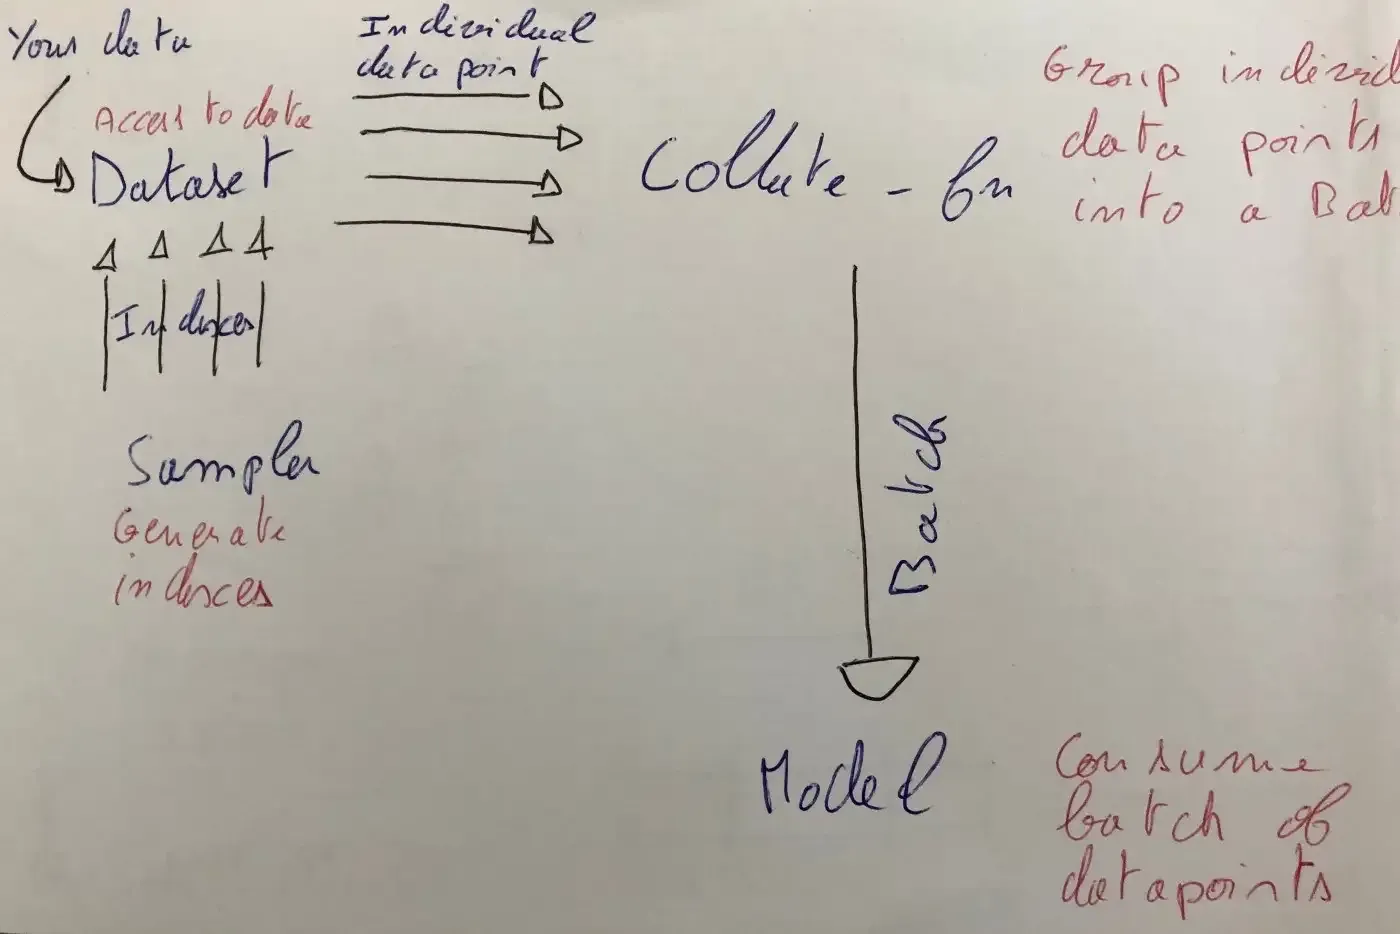 Your data
Individual
data point
Access to data
Dataset
Indexes
Sampler
Generate
indexes
Collate_fn
Group individ
data points
into a Bat
Batch
Model
Consume
batch of
datapoints